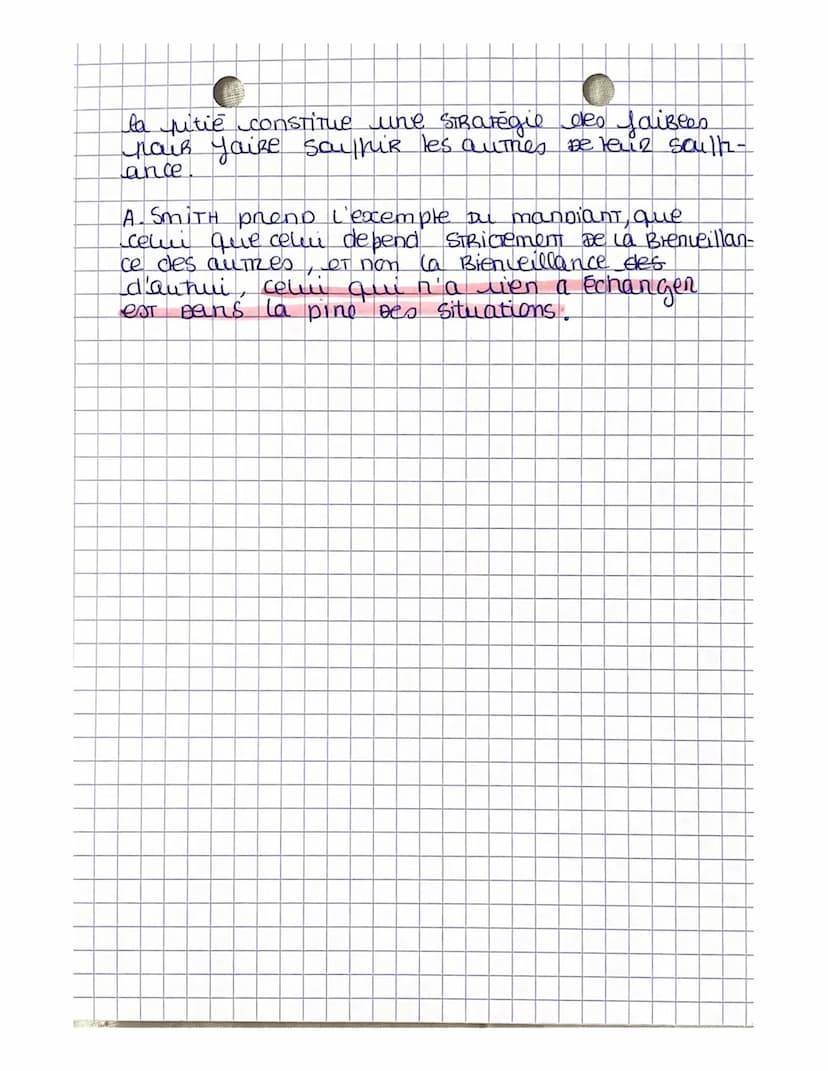 la pitié constitue une stratégie des faibles
pour faire souffrir les autres de leur souffr-
ance.
A. Smith prend l'exemple du mendiant, que
celui que celui depend strictement de la Bienveillan-
ce des autres, et non la Bienveillance des
d'autrui, celui qui n'a rien a échanger
est dans la pire des situations.